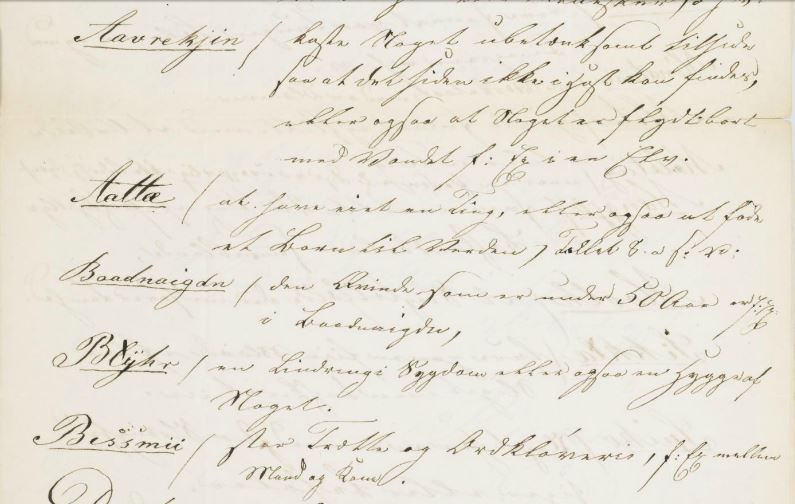 Aavrekjin / kaste Noget ubetænksomt tilside
saa at det siden ikke igjen kan findes,
eller ogsaa at Noget er flydt bort
med Vandet f: Ex i en Elv.
Aattæ / at have eiet en Ting, eller ogsaa at føde
et Barn til Verden, Tallet
Baadnaigdn / den Qvinde som er under 50 Aar er f: Ex
i Baadnaigdn,
Blijkr / en Lindring i Sygdom eller ogsaa en Hygge af
Noget.
Bessmii / stor Trætte og Ordkløveri, f: Ex mellem
Mand og Kone.